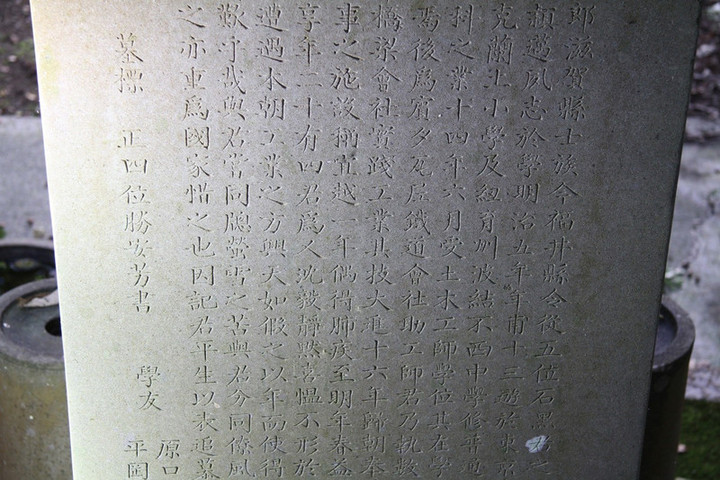 郎滋賀縣士族今福井縣令從五位石黑務之
頴邁夙志於學明治五年年甫十三遊於米宕
克蘭上小學及紐育州波結不西中學修普通
科之業十四年六月受土木工師學位其在學
焉後為賓夕尼屋鐵道會社助工師君乃執數
橋梁會社實踐工業其技大進十六年歸朝奉
事之施設擔實越一年偶得肺疾至明年春益
享年二十有四君為人沈毅靜默喜慍不形於
遭遇本朝工業之方興天如假之以年而使得
歎乎哉與君嘗同牕螢雪之苦與君分同僚風
之亦重為國家惜之也因記君平生以表追慕
墓標 正四位勝安芳書 學友 原口
平岡